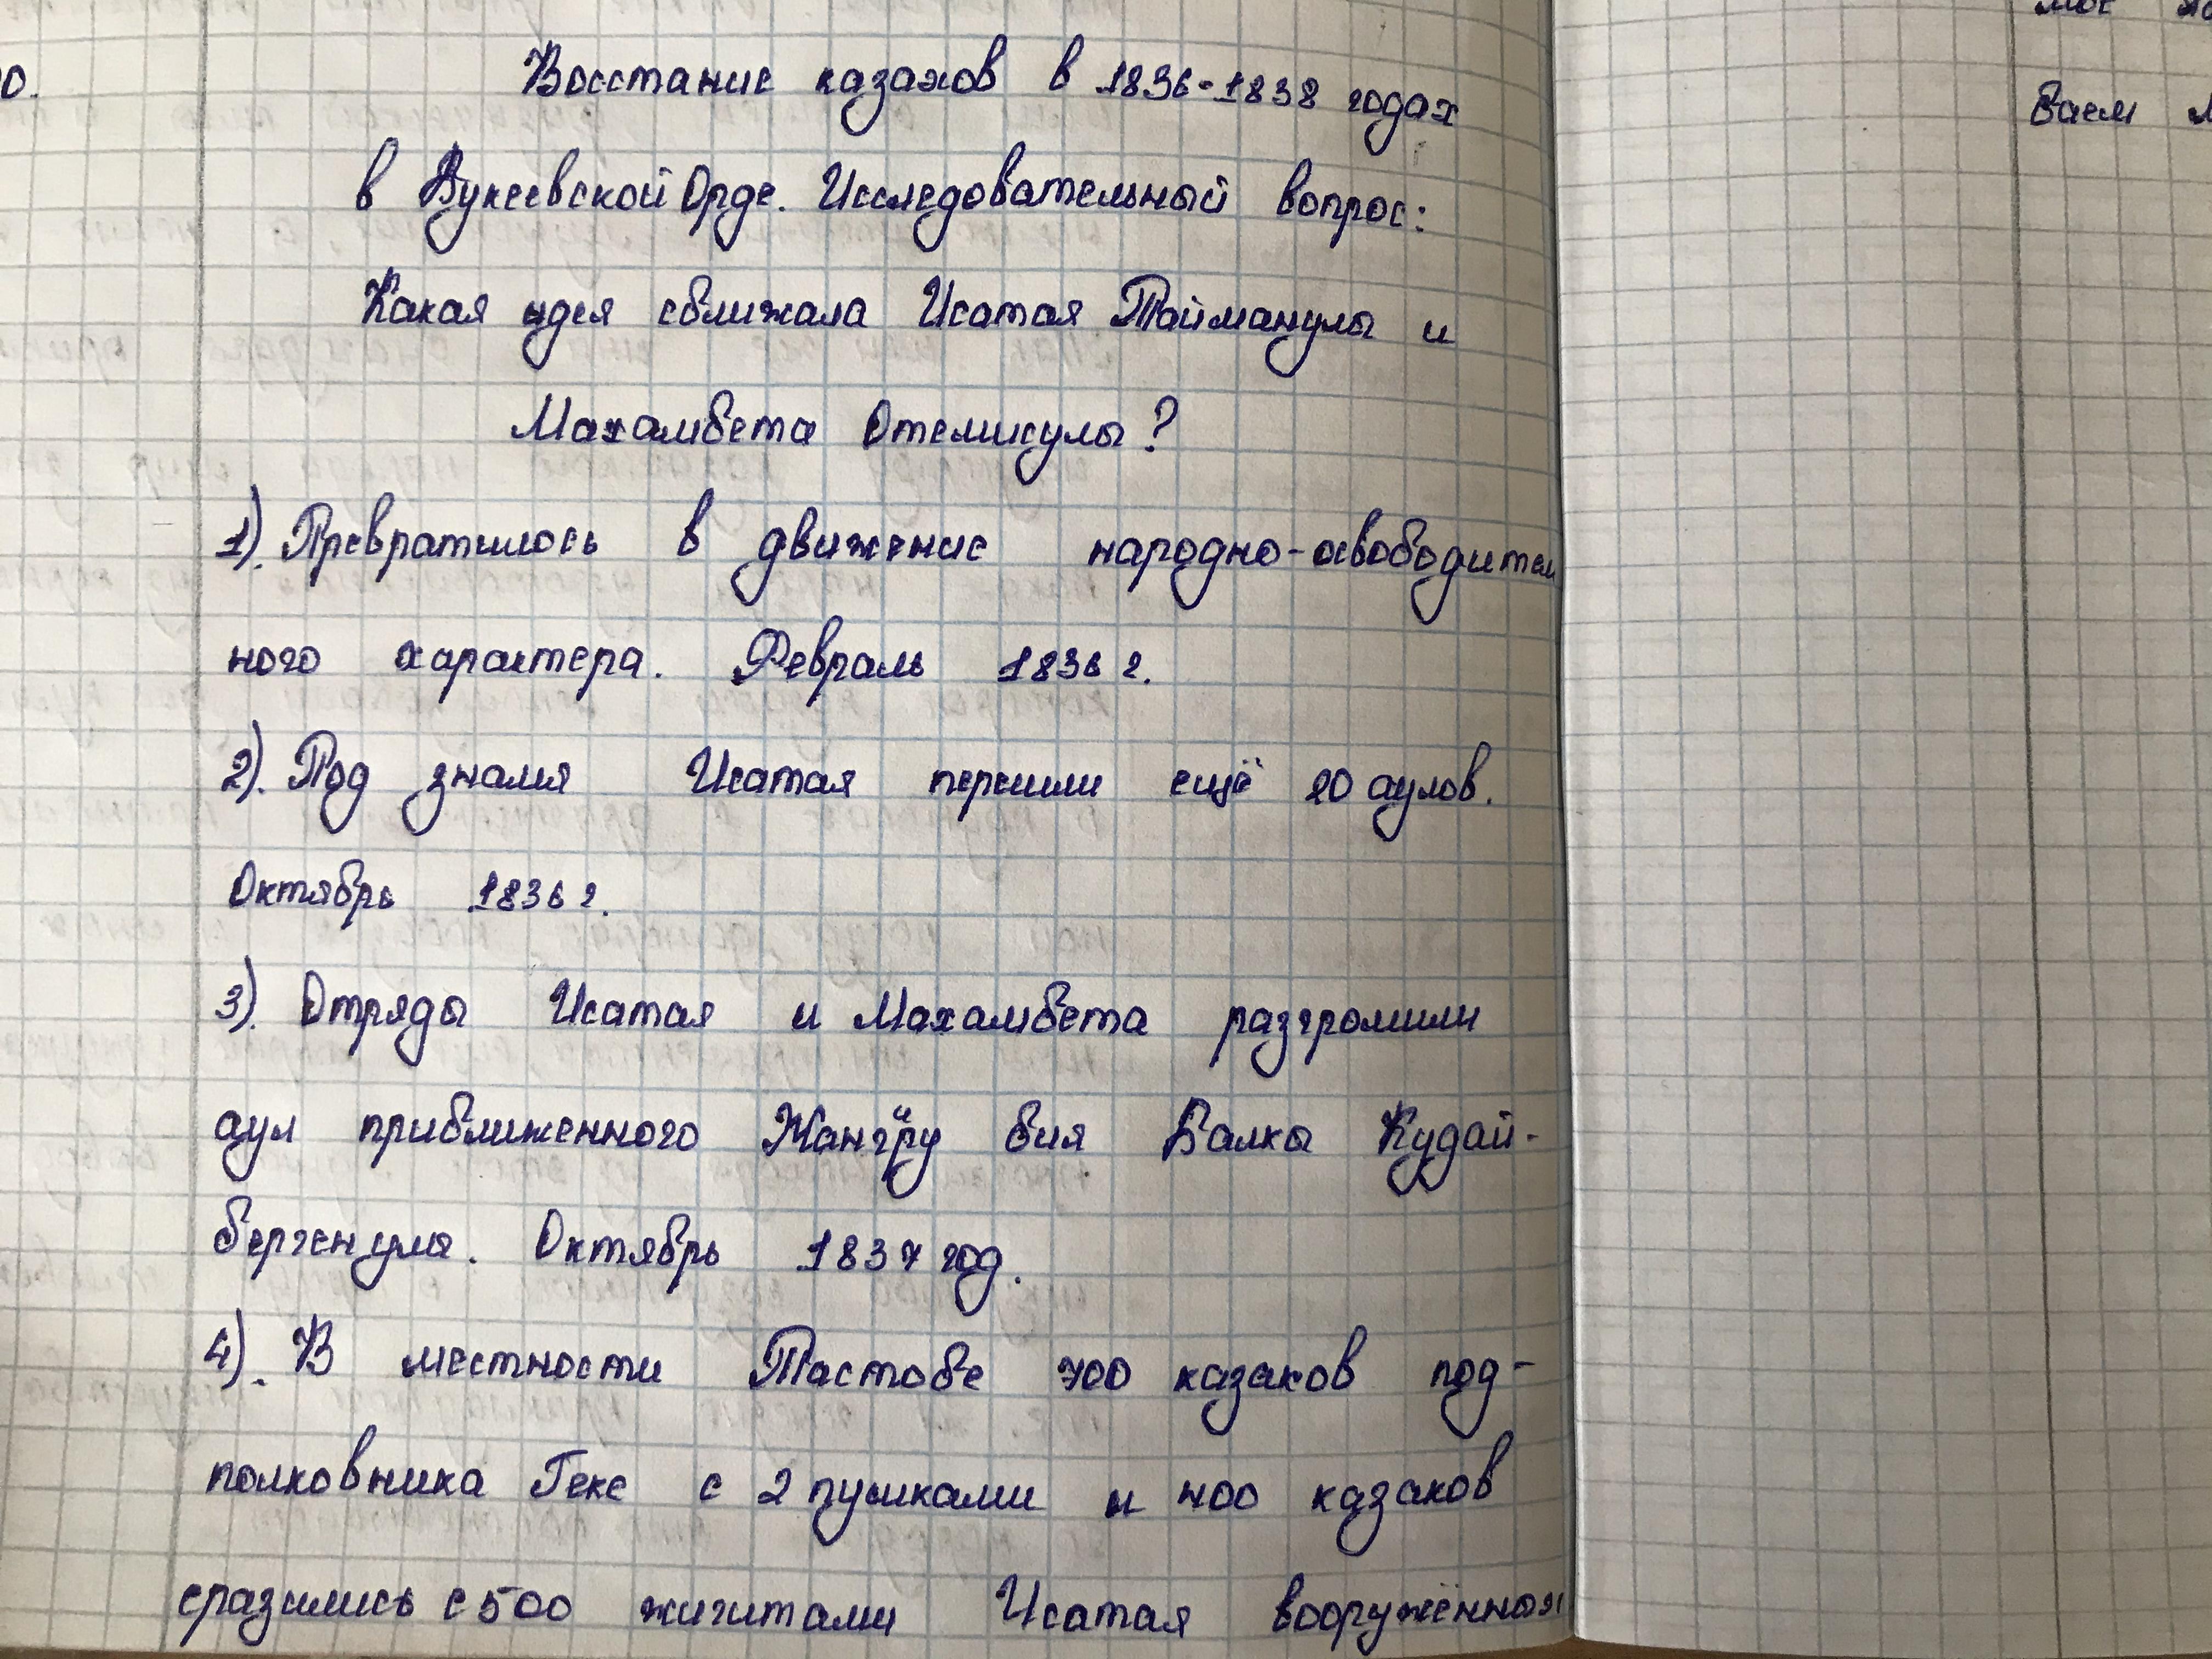 Восстание казахов в 1836-1838 годах
в Букеевской Орде. Исследовательный вопрос:
Какая идея сближала Исатая Тайманулы и
Махамбета Отемисулы?
1). Превратилось в движение народно-освободител
ного характера. Февраль 1836 г.
2). Под знамя Исатая перешли ещё 20 аулов.
Октябрь 1836 г.
3). Отряды Исатая и Махамбета разгромили
аул приближенного Жангiру бия Балкы Кудай-
бергенулы. Октябрь 1837 год.
4). В местности Тастобе 700 казахов под-
полковника Геке с 2 пушками и 400 казаков
сразились с 500 жигитами Исатая вооружённых
0.
Ваем